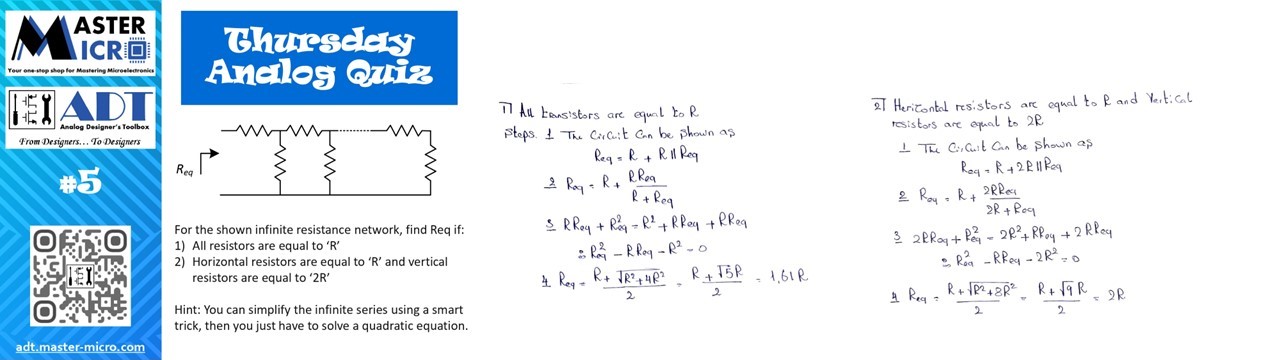 MASTER
MICRO
Your one-stop shop for Mastering Microelectronics
ADT
Analog Designer's Toolbox
From Designers... To Designers
#5
adt.master-micro.com
Thursday
Analog Quiz
Req
For the shown infinite resistance network, find Req if:
1) All resistors are equal to 'R'
2) Horizontal resistors are equal to 'R' and vertical
resistors are equal to '2R'
Hint: You can simplify the infinite series using a smart
trick, then you just have to solve a quadratic equation.
1) All transistors are equal to R
Steps. 1 The Circuit Can be shown as
Req = R + R || Req
2 Req = R + RReq / R + Req
3 RReq + Req² = R² + RReq + RReq
∴ Req² - RReq - R² = 0
4 Req = R + √R²+4R² / 2 = R + √5R / 2 = 1,61R
2) Horizontal resistors are equal to R and Vertical
resistors are equal to 2R
1 The Circuit Can be shown as
Req = R + 2R || Req
2 Req = R + 2RReq / 2R + Req
3 2RReq + Req² = 2R² + RReq + 2RReq
∴ Req² - RReq - 2R² = 0
4 Req = R + √R²+8R² / 2 = R + √9 R / 2 = 2R